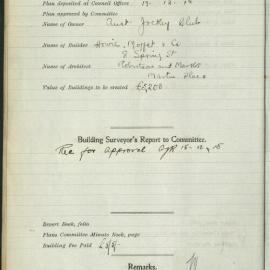 Plan deposited at Council Offices 19. 12. 18
Plan approved by Committee
Name of Owner Aust Jockey Club
Name of Builder Howie, Moffat & Co
8 Spring St
Name of Architect Robertson and Marks
Martin Place
Value of Buildings to be erected £5,200
Building Surveyor's Report to Committee.
Rec for Approval
Report Book, folio
Plans Committee Minute Book, page
Building Fee Paid
Remarks.